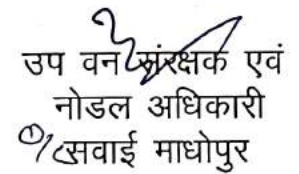 उप वन संरक्षक एवं
नोडल अधिकारी
सवाई माधोपुर